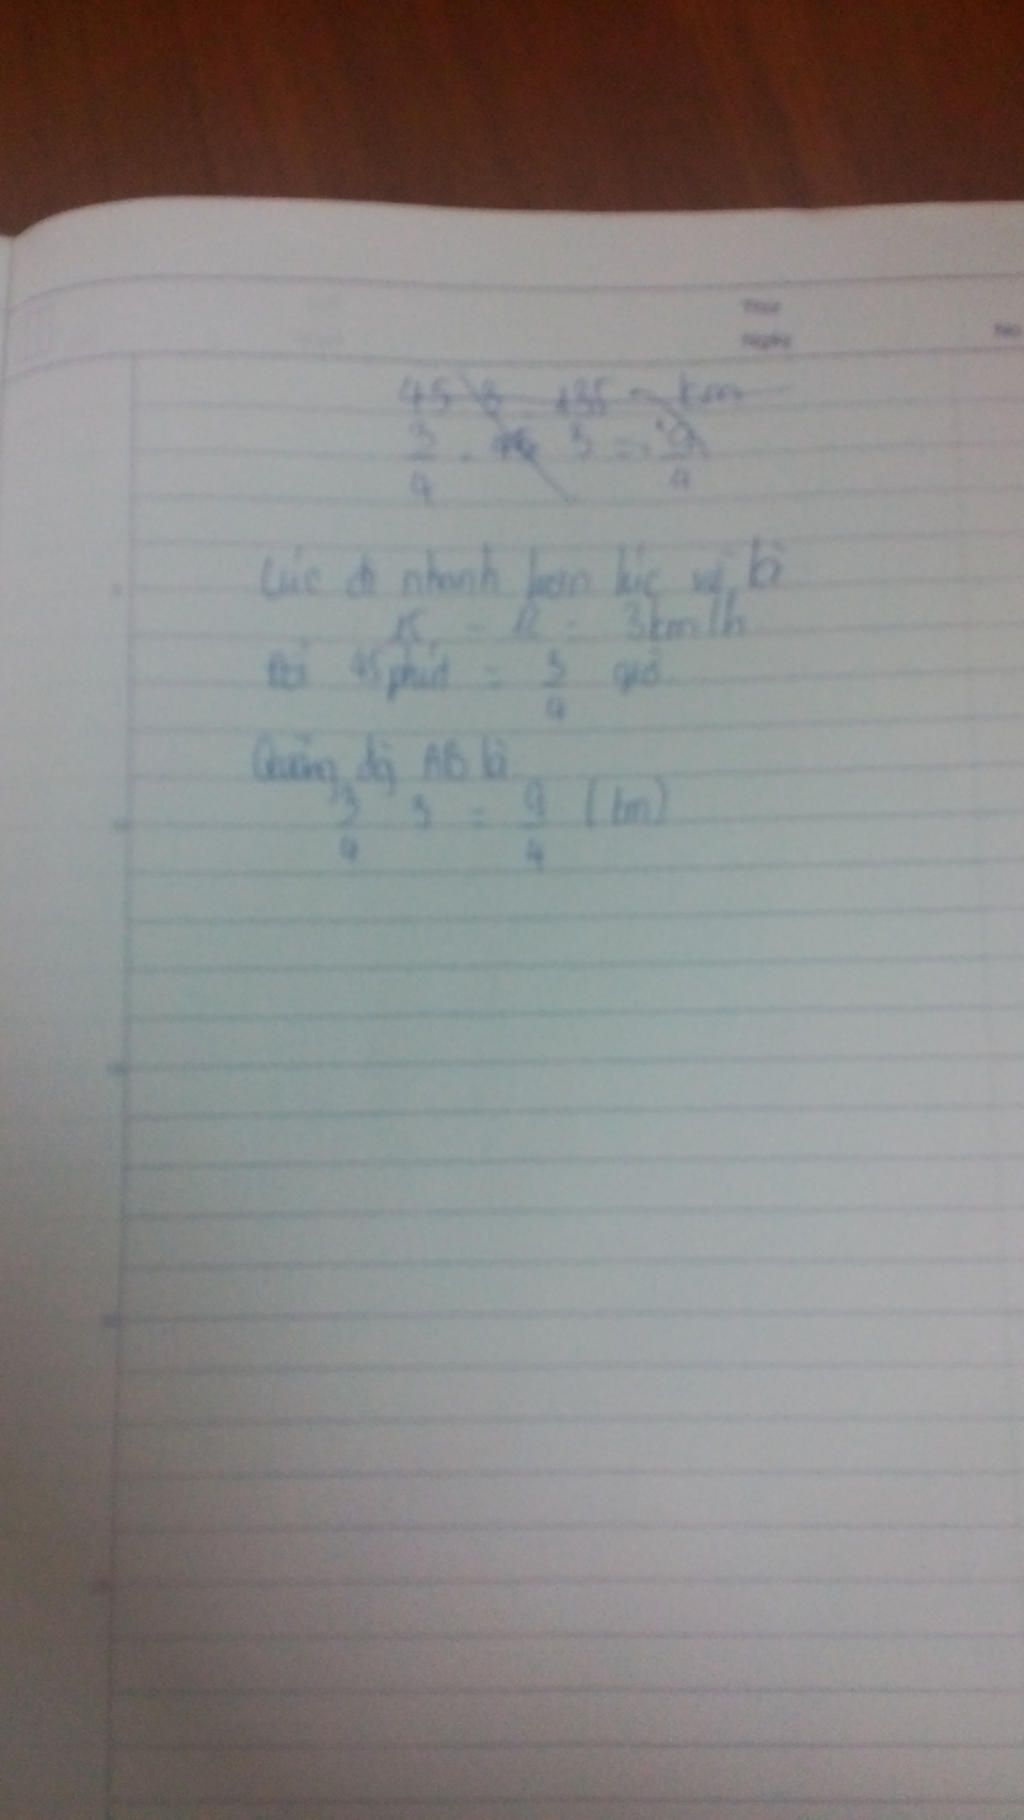 Thứ
Ngày
No
45 3 135 km
3/4 . 3 = 9/4
Lúc đi nhanh hơn lúc về là
15 - 12 = 3km/h
Đổi 45 phút = 3/4 giờ
Quãng đg AB là
3/4 3 = 9/4 (km)